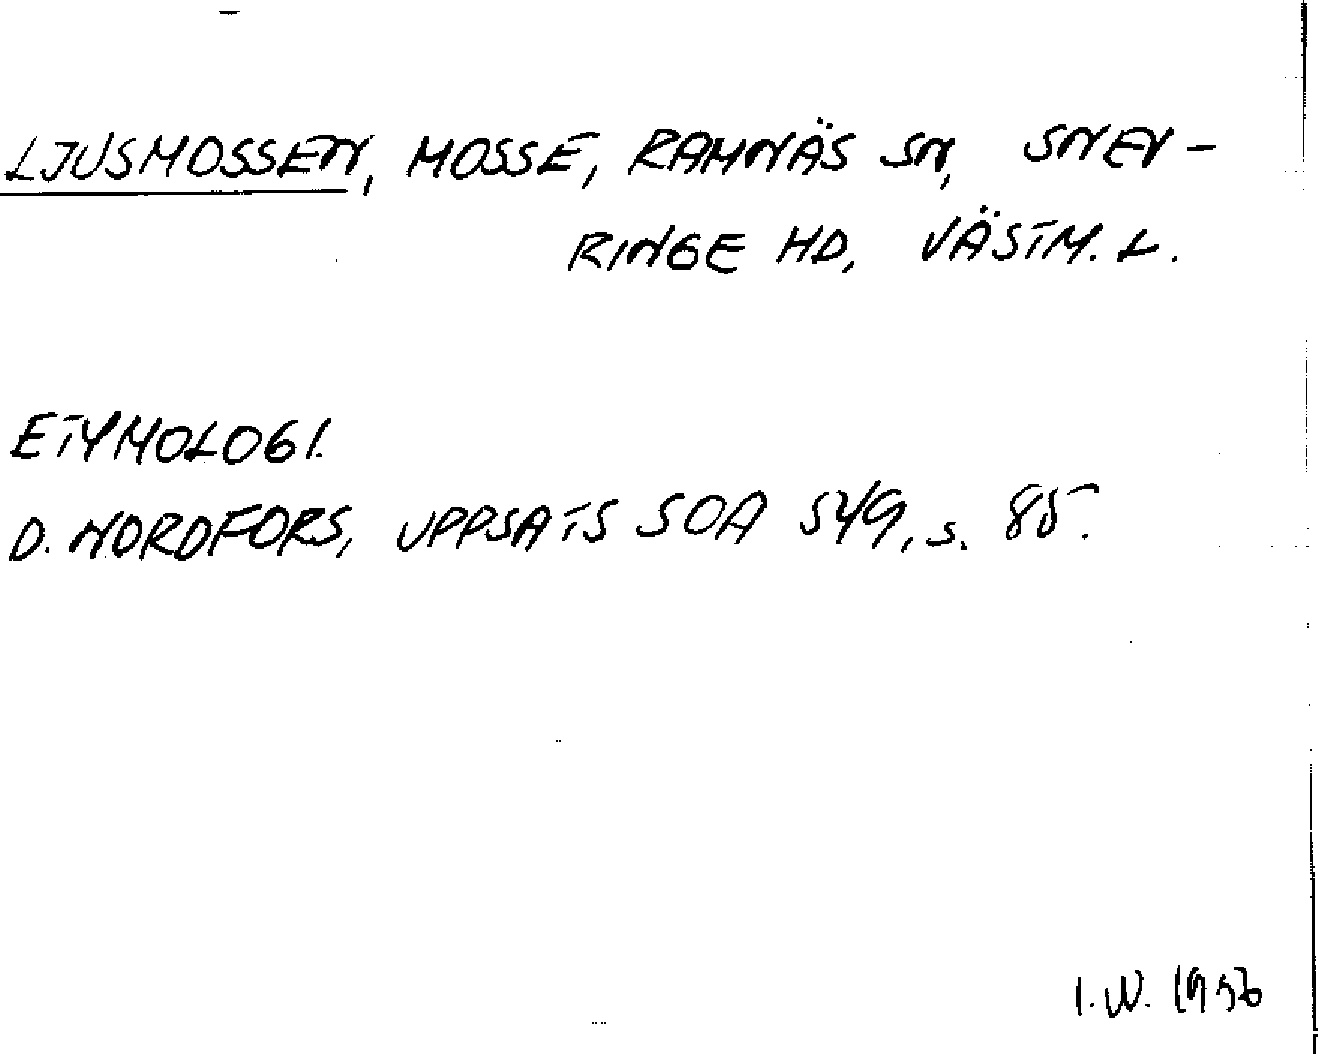 LJUSMOSSEN, MOSSE, RAMNÄS SN, SNEV-
RINGE HD, VÄSTM. L.
ETYMOLOGI.
D. NORDFORS, UPPSATS SOA 549, s. 85.
I.W. 1956